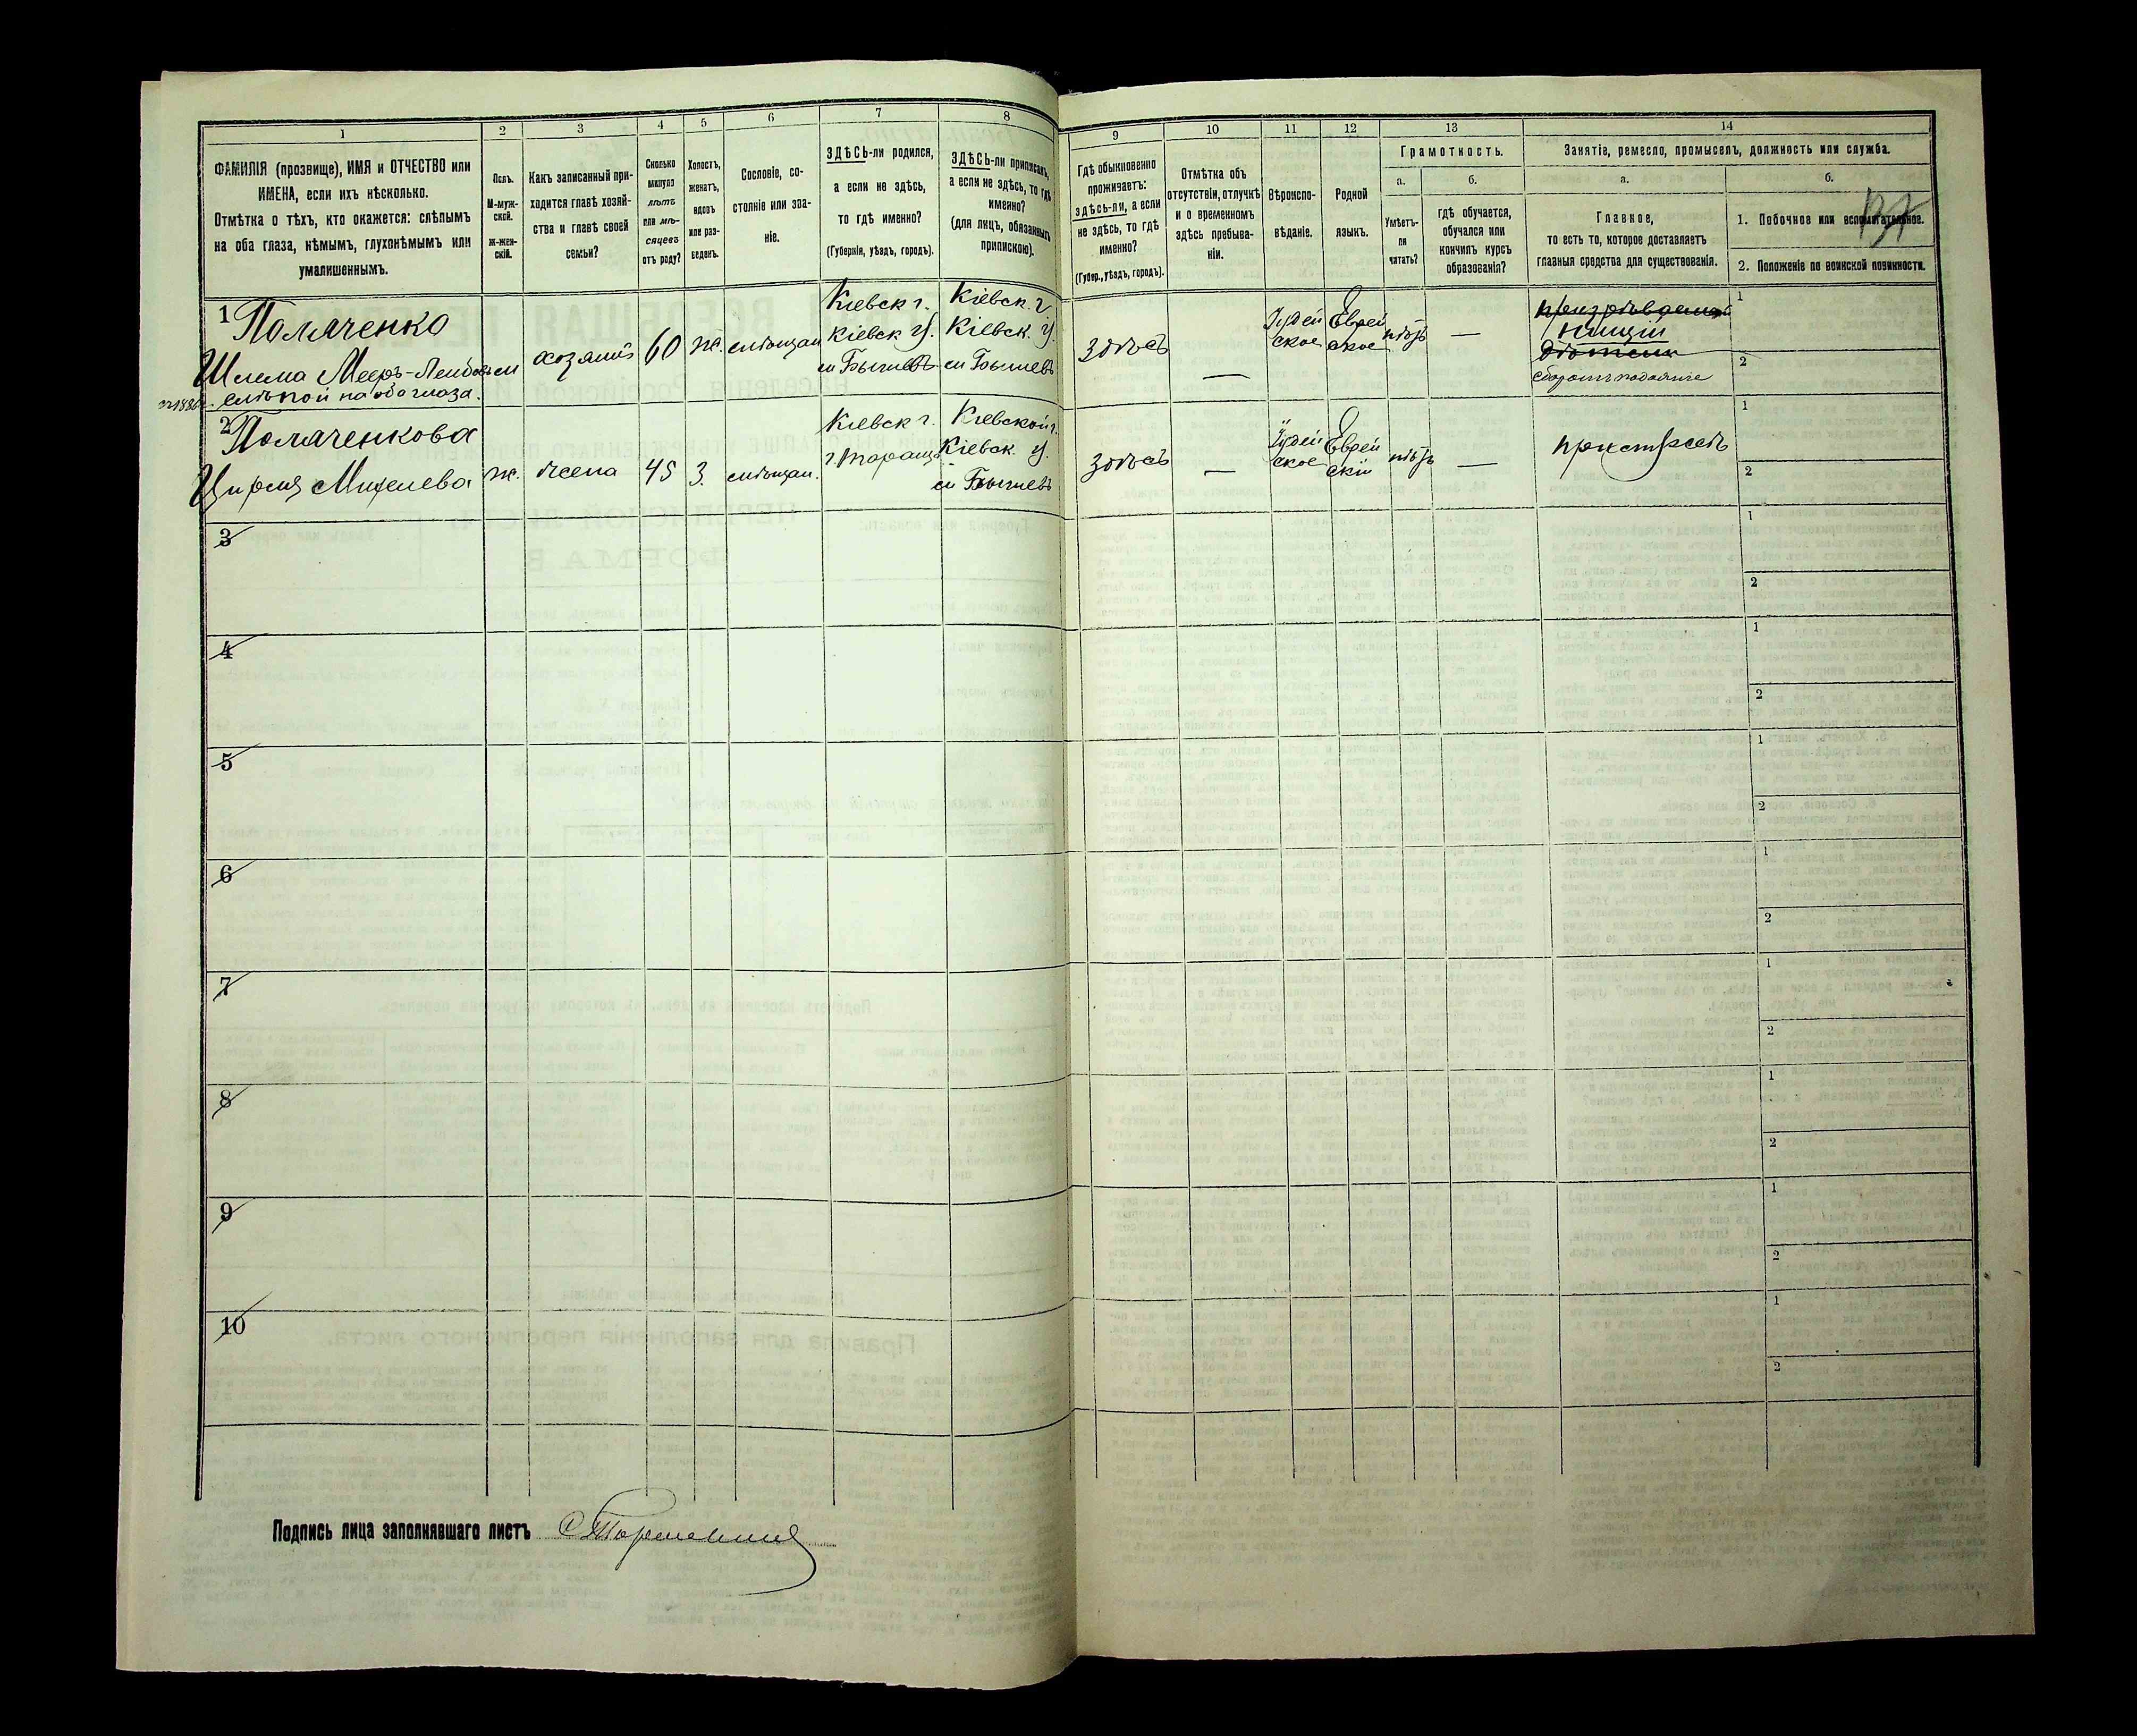 1
2
3
4
5
6
7
8
9
10
11
12
13
14
ФАМИЛІЯ (прозвище), ИМЯ и ОТЧЕСТВО или
ИМЕНА, если ихъ нѣсколько.
Отмѣтка о тѣхъ, кто окажется: слѣпымъ
на оба глаза, нѣмымъ, глухонѣмымъ или
умалишеннымъ.
Полъ.
М-муж-
ской.
ж-жен-
скій.
Какъ записанный при-
ходится главѣ хозяй-
ства и главѣ своей
семьи?
Сколько
минуло
лѣтъ
или мѣ-
сяцевъ
отъ роду?
Холостъ,
женатъ,
вдовъ
или раз-
веденъ.
Сословіе, со-
стояніе или зва-
ніе.
ЗДѢСЬ-ли родился,
а если не здѣсь,
то гдѣ именно?
(Губернія, уѣздъ, городъ).
ЗДѢСЬ-ли приписанъ,
а если не здѣсь, то гдѣ
именно?
(для лицъ, обязанныхъ
припискою).
Гдѣ обыкновенно
проживаетъ:
здѣсь-ли, а если
не здѣсь, то гдѣ
именно?
(Губер., уѣздъ, городъ).
Отмѣтка объ
отсутствіи, отлучкѣ
и о временномъ
здѣсь пребыва-
ніи.
Вѣроиспо-
вѣданіе.
Родной
языкъ.
Грамотность.
а.
Умѣетъ-
ли
читать?
б.
гдѣ обучается,
обучался или
кончилъ курсъ
образованія?
Занятіе, ремесло, промыселъ, должность или служба.
а.
Главное,
то есть то, которое доставляетъ
главныя средства для существованія.
б.
1. Побочное или вспомогательное.
2. Положеніе по воинской повинности.
137
1 Поляченко
Шлема Мееръ-Лейбов
слѣпой на оба глаза.
м
хозяинъ
60
ж.
мѣщан
Кіевск г.
Кіевск у.
м Бышевъ
Кіевск. г
Кіевск. у.
м Бышевъ
здѣсь
—
Іудей
ское
Еврей
ское
нѣтъ
—
нищій
сборомъ подаянія
1
2
2 Поляченкова
Цирля Михелева
ж.
жена
45
З.
мѣщан.
Кіевск г.
г. Тараща
Кіевской г.
Кіевск. у.
м Бышевъ
здѣсь
—
Іудей
ское
Еврей
скій
нѣтъ
—
при мужѣ
1
2
3
1
2
4
1
2
5
1
2
6
1
2
7
1
2
8
1
2
9
1
2
10
1
2
Подпись лица заполнявшаго листъ